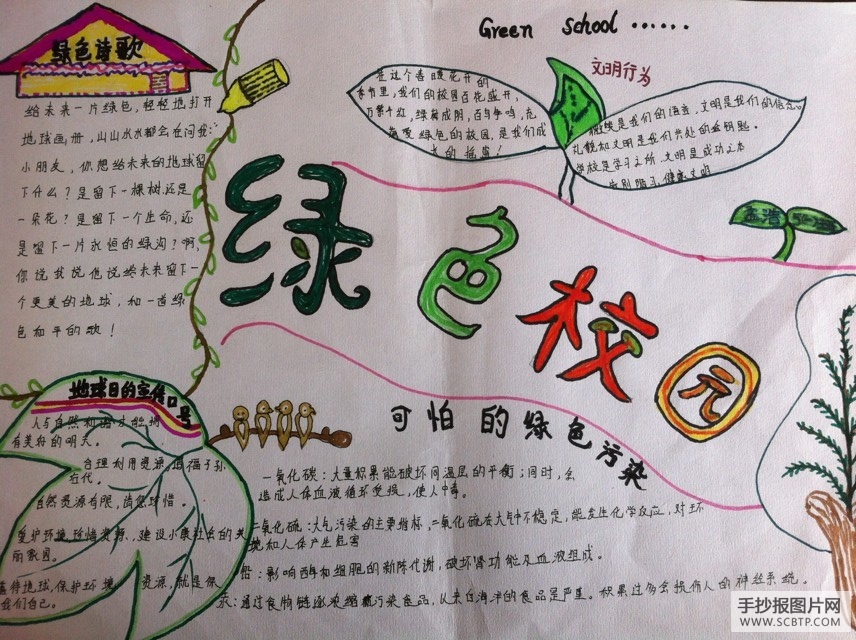 Green School ······
绿色诗歌
给未来一片绿色,轻轻地打开
地球画册,山山水水都会在问我:
小朋友,你想给未来的地球留
下什么?是留下一棵树,还是
一朵花?是留下一个生命,还
是留下一片永恒的绿沟?啊,
你说我说他说给未来留下一
个更美的地球,和一首绿
色和平的歌!
在这个春暖花开的
季节里,我们的校园百花盛开,
万紫千红,绿树成阴,百鸟争鸣,
绿色的校园,是我们成
长的摇篮!
文明行为
是我们的语言,文明是我们的信念。
礼貌和文明是我们共处的金钥匙。
学校是学习之所,文明是成功之本
绿色校园
地球日的宣传口号
人与自然和
有美好的明天。
合理利用资源,造福子孙
近代。
自然资源有限,请您珍惜。
爱护环境,珍惜资源,建设小康社会的美
丽家园。
善待地球,保护环境 资源,就是保
我们自己。
可怕的绿色污染
一氧化碳:大量积累能破坏同温层的平衡;同时,会
造成人体血液循环受损,使人中毒。
二氧化硫:大气污染的主要指标,二氧化硫在大气中不稳定,能发生化学反应,对环
境和人体产生危害
铅:影响酶和细胞的新陈代谢,破坏肾功能及血液组成。
汞:通过食物链逐液缩 污染食品,从来自海洋的食品是严重。积累过多会损伤人的神经系统。
手抄报图片网
WWW.SCBTP.COM